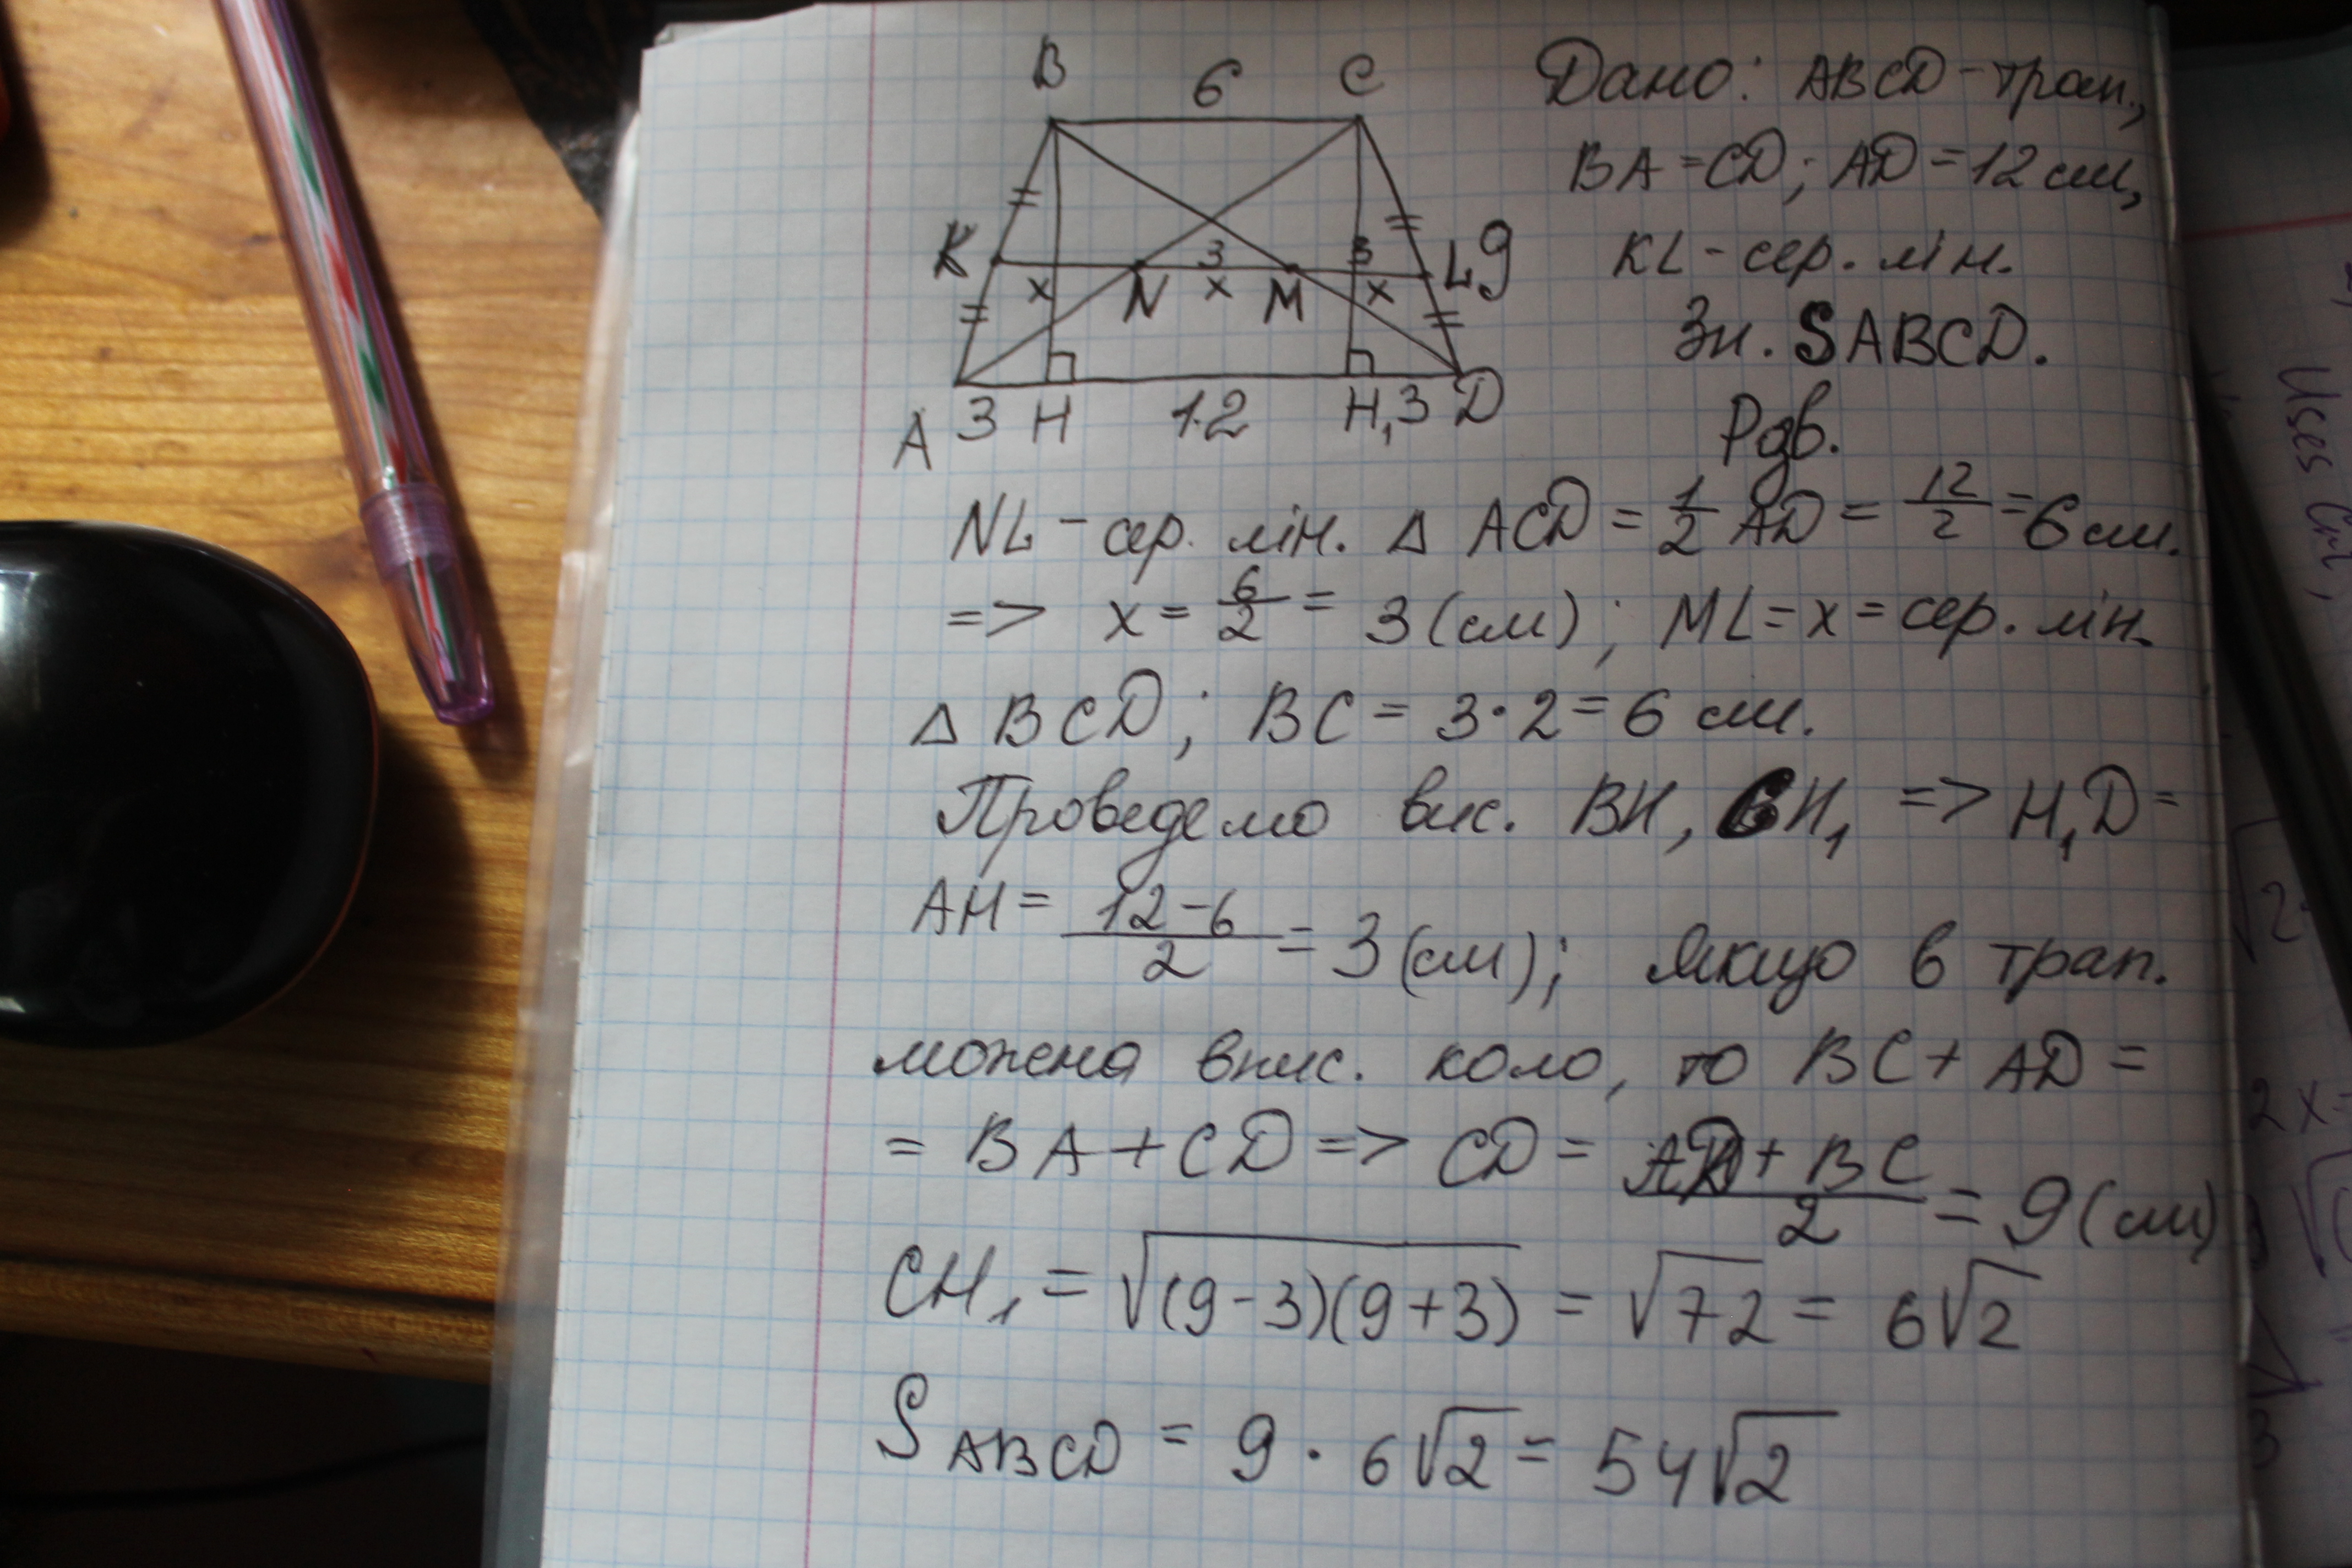 B 6 C
K x N 3 x M 3 x L 9
A 3 H 12 H₁ 3 D
Дано: ABCD - трап.,
BA = CD; AD = 12 см,
KL - сер. лін.
Зн. SABCD.
Рзв.
NL - сер. лін. △ ACD = 1/2 AD = 12/2 = 6 см.
=> x = 6/2 = 3 (см); ML = x = сер. лін.
△ BCD; BC = 3 · 2 = 6 см.
Проведемо вис. BH, CH₁ => H₁D =
AH = (12 - 6)/2 = 3 (см); Якщо в трап.
можна впис. коло, то BC + AD =
= BA + CD => CD = (AD + BC)/2 = 9 (см)
CH₁ = √(9 - 3)(9 + 3) = √72 = 6√2
S ABCD = 9 · 6√2 = 54√2
Uses